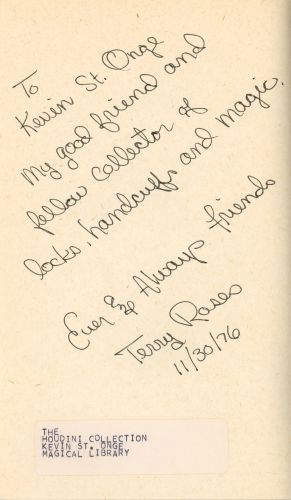 To
Kevin St. Onge
My good friend and
fellow collector of
locks, handcuffs and magic.
Ever & Always friends
Terry
11/30/76
THE
HOUDINI COLLECTION
KEVIN ST. ONGE
MAGICAL LIBRARY